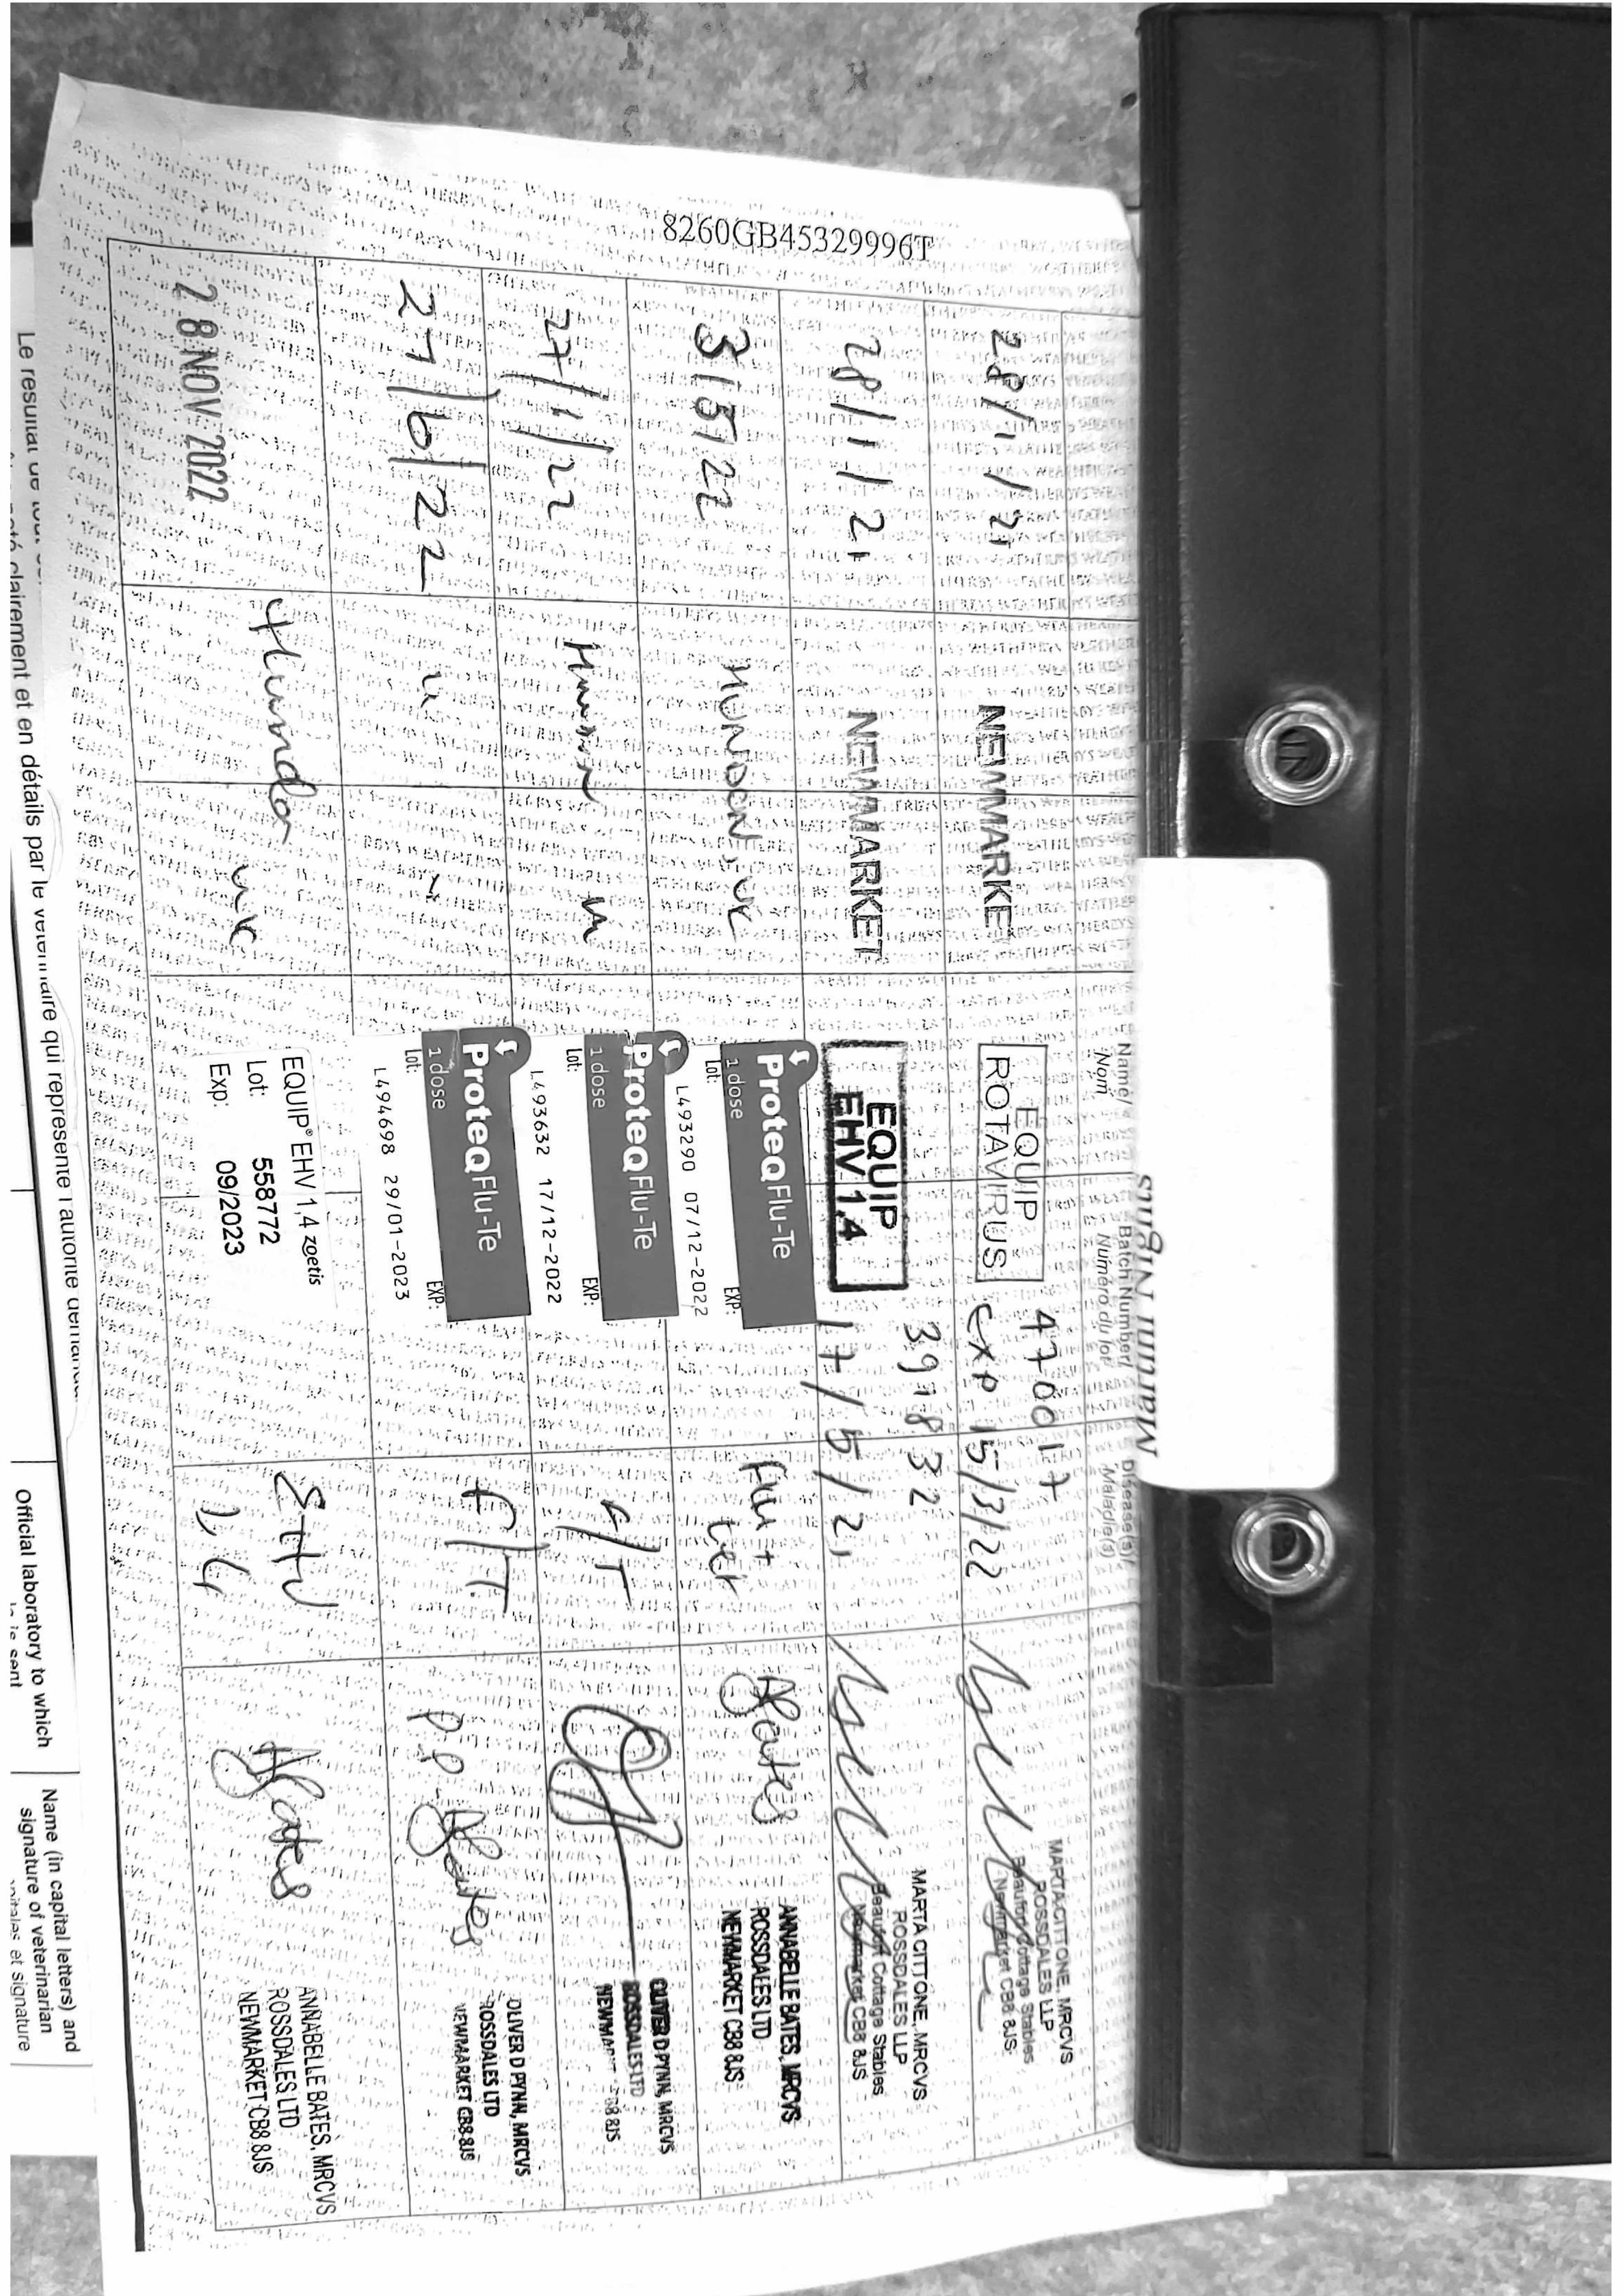 8260GB45329996T
Martin Nigbus
Name/
Nom
Batch Number/
Numéro du lot
Disease(s)/
Maladie(s)
28/1/21
NEWMARKET
EQUIP
ROTAVIRUS
470017
exp 15/3/22
MARTA CITTONE, MRCVS
ROSSDALES LLP
Beaufort Cottage Stables
Newmarket CB8 8JS
28/1/21
NEWMARKET
EQUIP
EHV 1,4
391832
17/5/21
MARTA CITTONE, MRCVS
ROSSDALES LLP
Beaufort Cottage Stables
Newmarket CB8 8JS
3/5/22
HUNDON, UK
ProteqFlu-Te
1 dose
Lot: EXP:
L493290 07/12-2022
Flu +
tet
ABates
ANNABELLE BATES, MRCVS
ROSSDALES LTD
NEWMARKET CB8 8JS
27/1/22
Hundon
ProteqFlu-Te
1 dose
Lot: EXP:
L493632 17/12-2022
F/T
OLIVER D PYNN, MRCVS
ROSSDALES LTD
NEWMARKET CB8 8JS
27/6/22
"
ProteqFlu-Te
1 dose
Lot: EXP:
L494698 29/01-2023
F/T
pp ABates
OLIVER D PYNN, MRCVS
ROSSDALES LTD
NEWMARKET CB8 8JS
28 NOV 2022
Hundon UK
EQUIP® EHV 1,4 zoetis
Lot: 558772
Exp: 09/2023
EHV
1,4
ABates
ANNABELLE BATES, MRCVS
ROSSDALES LTD
NEWMARKET CB8 8JS
Le resultat de tout
clairement et en détails par le vétérinaire qui représente l'autorité
Official laboratory to which
Name (in capital letters) and
signature of veterinarian
et signature